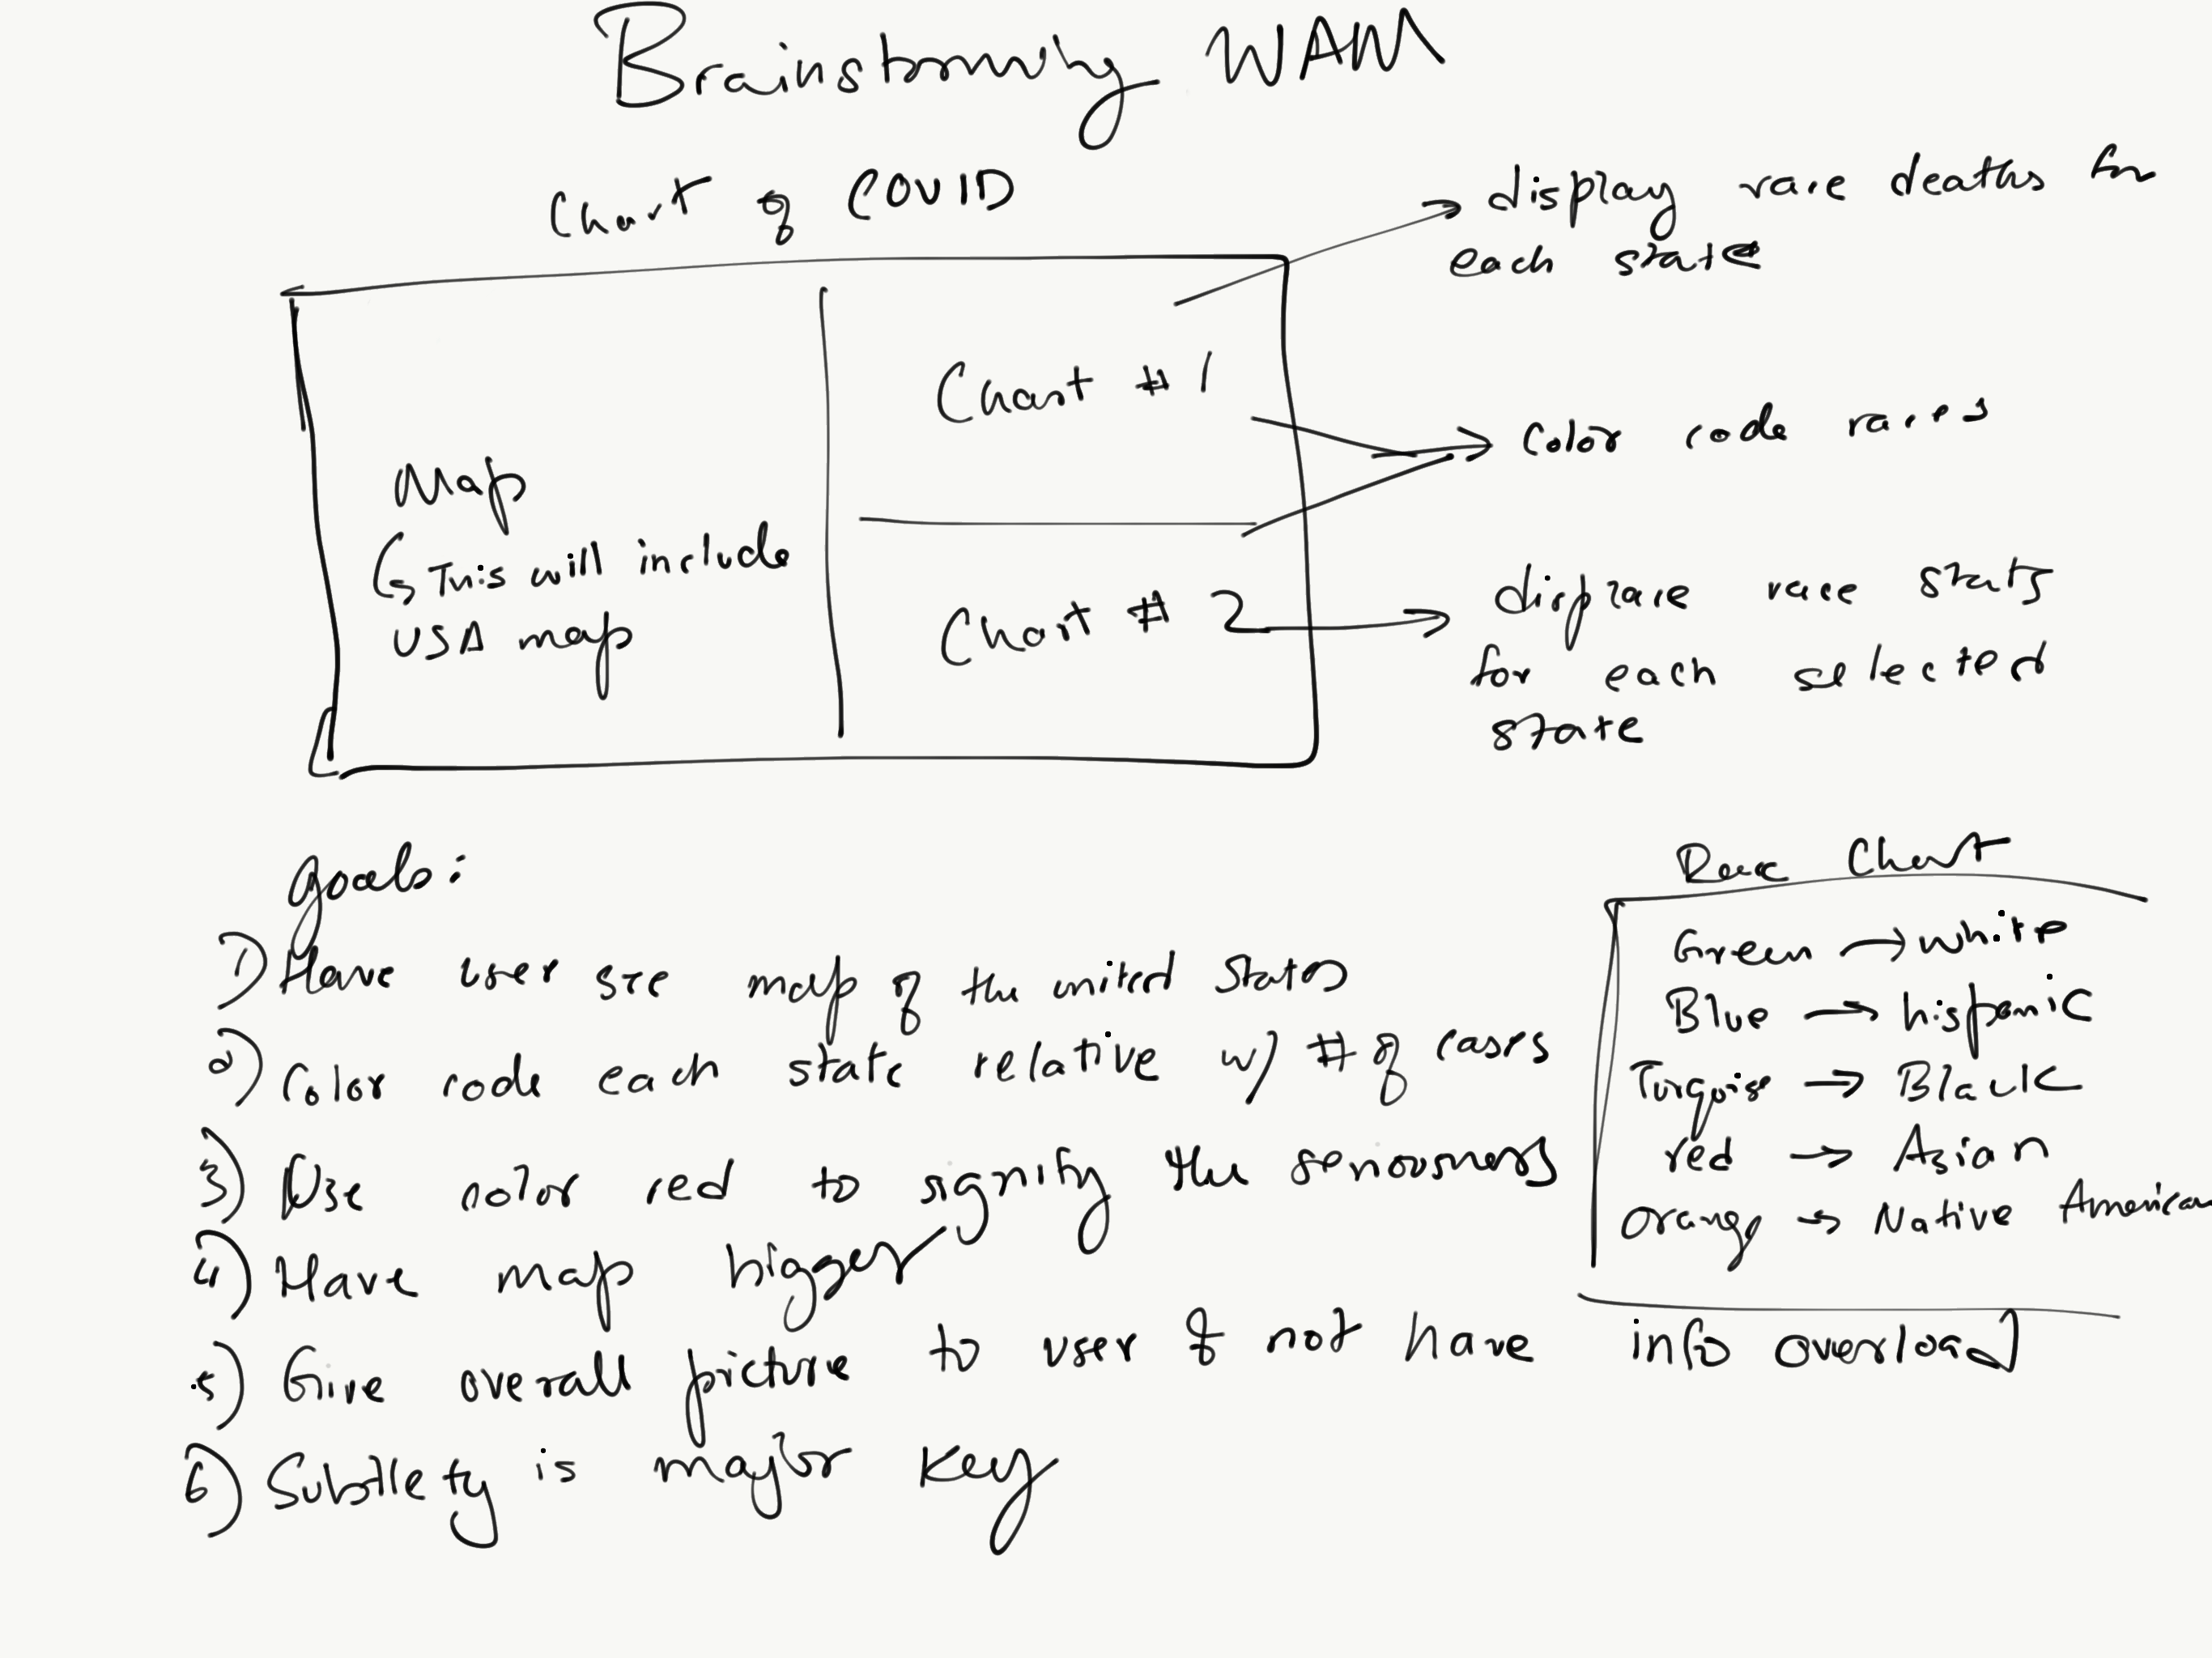 Brainstorming WAM
Chart of COVID
display race deaths for
each state
Chart #1
Color code races
Map
↳ This will include
USA map
Chart # 2
displace race stats
for each selected
state
goals:
1) Have user see map of the united states
2) Color code each state relative w/ # of cases
3) Use color red to signify the seriousness
4) Have map bigger
5) Give overall picture to user & not have info overload
6) Subtlety is major key
Race Chart
Green → white
Blue → hispanic
Turqoise → Black
red → Asian
Orange → Native American